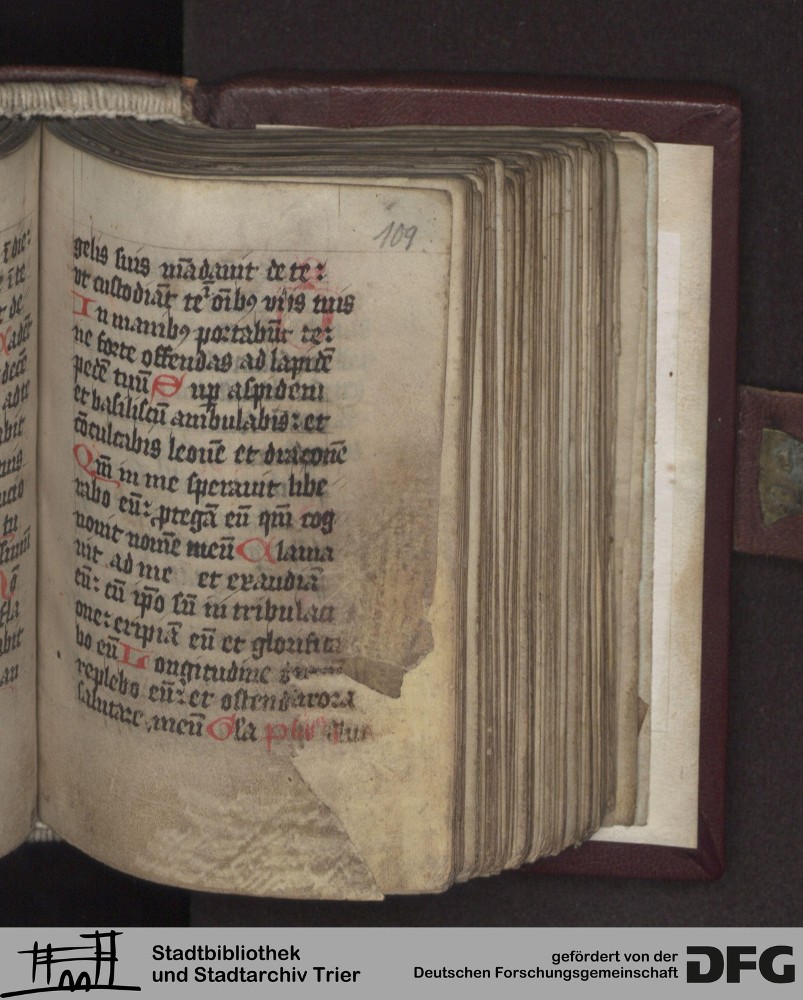 109
gelis suis mādauit de te:
vt custodiāt te ī oībꝯ viis tuis
In manibꝯ portabūt te:
ne forte offendas ad lapidē
pedē tuū Sup aspidem
et basiliscū ambulabis: et
cōculcabis leonē et draconē
Qm̄ in me sperauit libe
rabo eū: ꝓtegā eū qm̄ cog
nouit nomē meū Clama
uit ad me et exaudiā
eū: cū ip̄o sū in tribulati
one: eripiā eū et glorifica
bo eū Longitudine
replebo eū: et ostend
salutare meū Gla
Stadtbibliothek
und Stadtarchiv Trier
gefördert von der
Deutschen Forschungsgemeinschaft
DFG